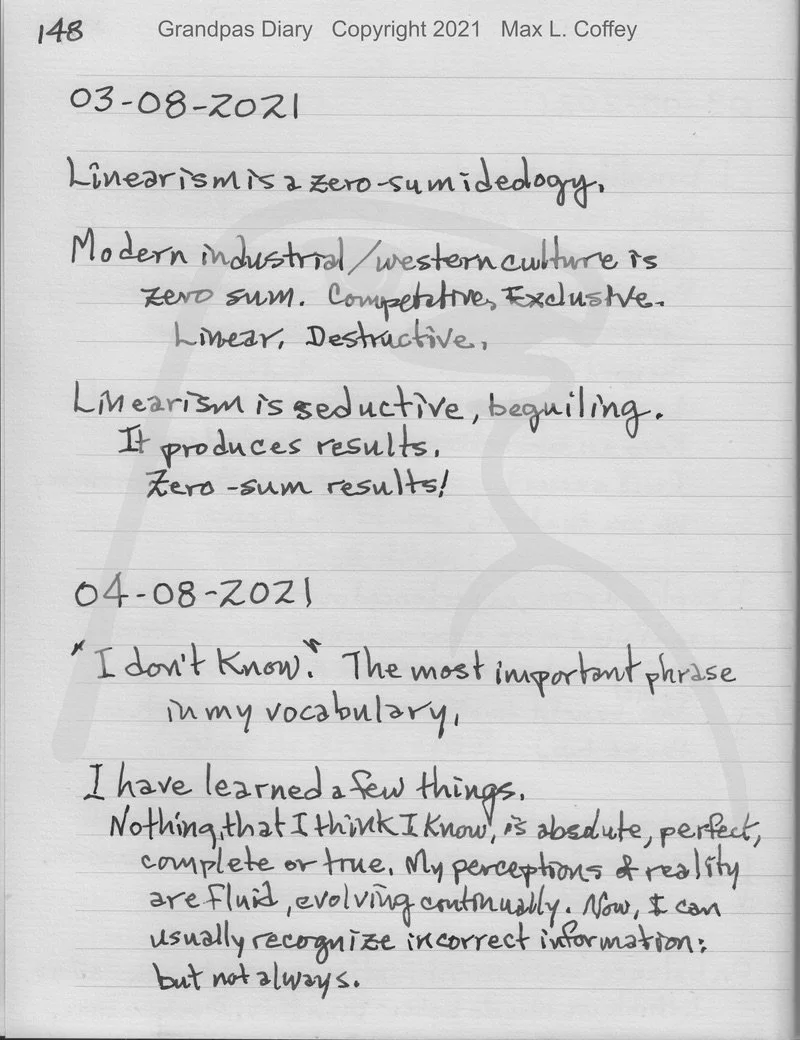 148 Grandpas Diary Copyright 2021 Max L. Coffey
03-08-2021
Linearism is a zero-sum ideology.
Modern industrial/western culture is
zero sum. Competative, Exclusive.
Linear, Destructive.
Linearism is seductive, beguiling.
It produces results.
Zero-sum results!
04-08-2021
"I don't know." The most important phrase
in my vocabulary.
I have learned a few things.
Nothing, that I think I know, is absolute, perfect,
complete or true. My perceptions of reality
are fluid, evolving continually. Now, I can
usually recognize incorrect information;
but not always.